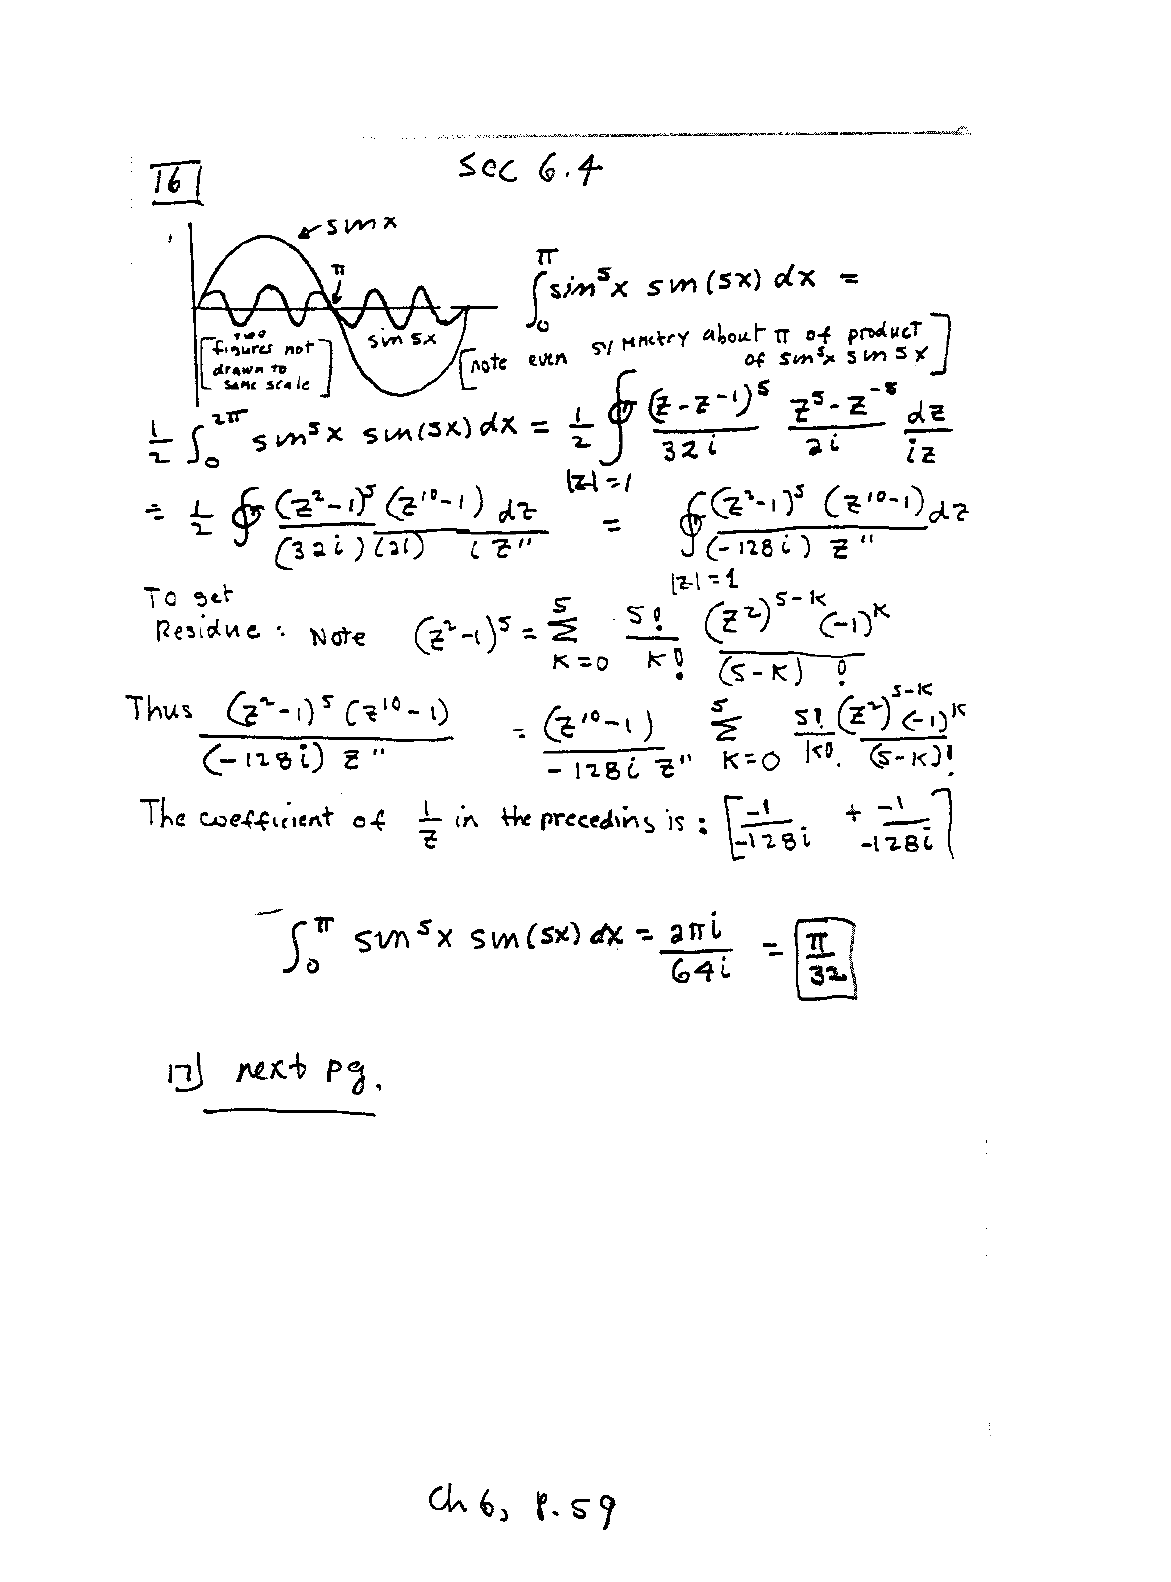 Sec 6.4
16
sin x
π
sin 5x
[two figures not drawn to same scale]
∫₀^π sin⁵x sin(5x) dx =
[note even symmetry about π of product of sin⁵x sin 5x]
1/2 ∫₀^2π sin⁵x sin(5x) dx = 1/2 ∮_{|z|=1} (z-z⁻¹)⁵/32i (z⁵-z⁻⁵)/2i dz/iz
= 1/2 ∮ (z²-1)⁵ (z¹⁰-1) dz / (32i)(2i) i z¹¹ = ∮_{|z|=1} (z²-1)⁵ (z¹⁰-1) dz / (-128i) z¹¹
To get
Residue: Note (z²-1)⁵ = Σ_{k=0}^5 5!/k! (z²)^{5-k} (-1)^k / (5-k)!
Thus (z²-1)⁵ (z¹⁰-1) / (-128i) z¹¹ = (z¹⁰-1) / -128i z¹¹ Σ_{k=0}^5 5!/k! (z²)^{5-k} (-1)^k / (5-k)!
The coefficient of 1/z in the preceding is: [-1/-128i + -1/-128i]
∫₀^π sin⁵x sin(5x) dx = 2πi/64i = π/32
17] next pg.
Ch 6, p. 59